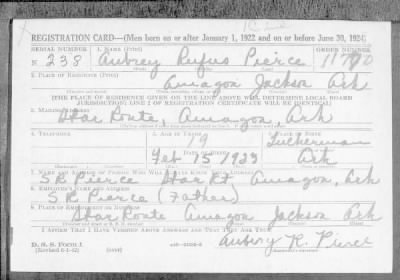 REGISTRATION CARD—(Men born on or after January 1, 1922 and on or before June 30, 1924)
SERIAL NUMBER 1. NAME (Print) ORDER NUMBER
N 238 Aubrey Rufus Pierce 11770
2. PLACE OF RESIDENCE (Print)
Amagon Jackson Ark
[THE PLACE OF RESIDENCE GIVEN ON THE LINE ABOVE WILL DETERMINE LOCAL BOARD
JURISDICTION; LINE 2 OF REGISTRATION CERTIFICATE WILL BE IDENTICAL]
3. MAILING ADDRESS
Star Route, Amagon, Ark
4. TELEPHONE 5. AGE IN YEARS 6. PLACE OF BIRTH
19 Tuckerman
DATE OF BIRTH
Feb 15 1923 Ark
7. NAME AND ADDRESS OF PERSON WHO WILL ALWAYS KNOW YOUR ADDRESS
S R Pierce Star Rt, Amagon, Ark
8. EMPLOYER'S NAME AND ADDRESS
S R Pierce (Father)
9. PLACE OF EMPLOYMENT OR BUSINESS
Star Route Amagon Jackson Ark
I AFFIRM THAT I HAVE VERIFIED ABOVE ANSWERS AND THAT THEY ARE TRUE.
D. S. S. Form 1
(Revised 6-1-42)
Aubrey R. Pierce